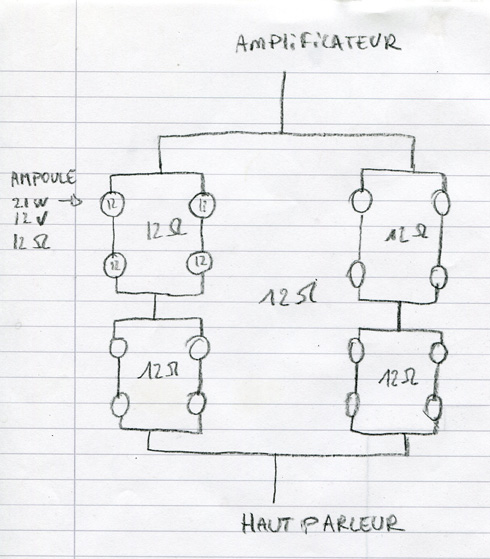 AMPLIFICATEUR
AMPOULE
21W
12V
12Ω
12 12
12Ω
12 12
12Ω
12Ω
12Ω
12Ω
HAUT PARLEUR